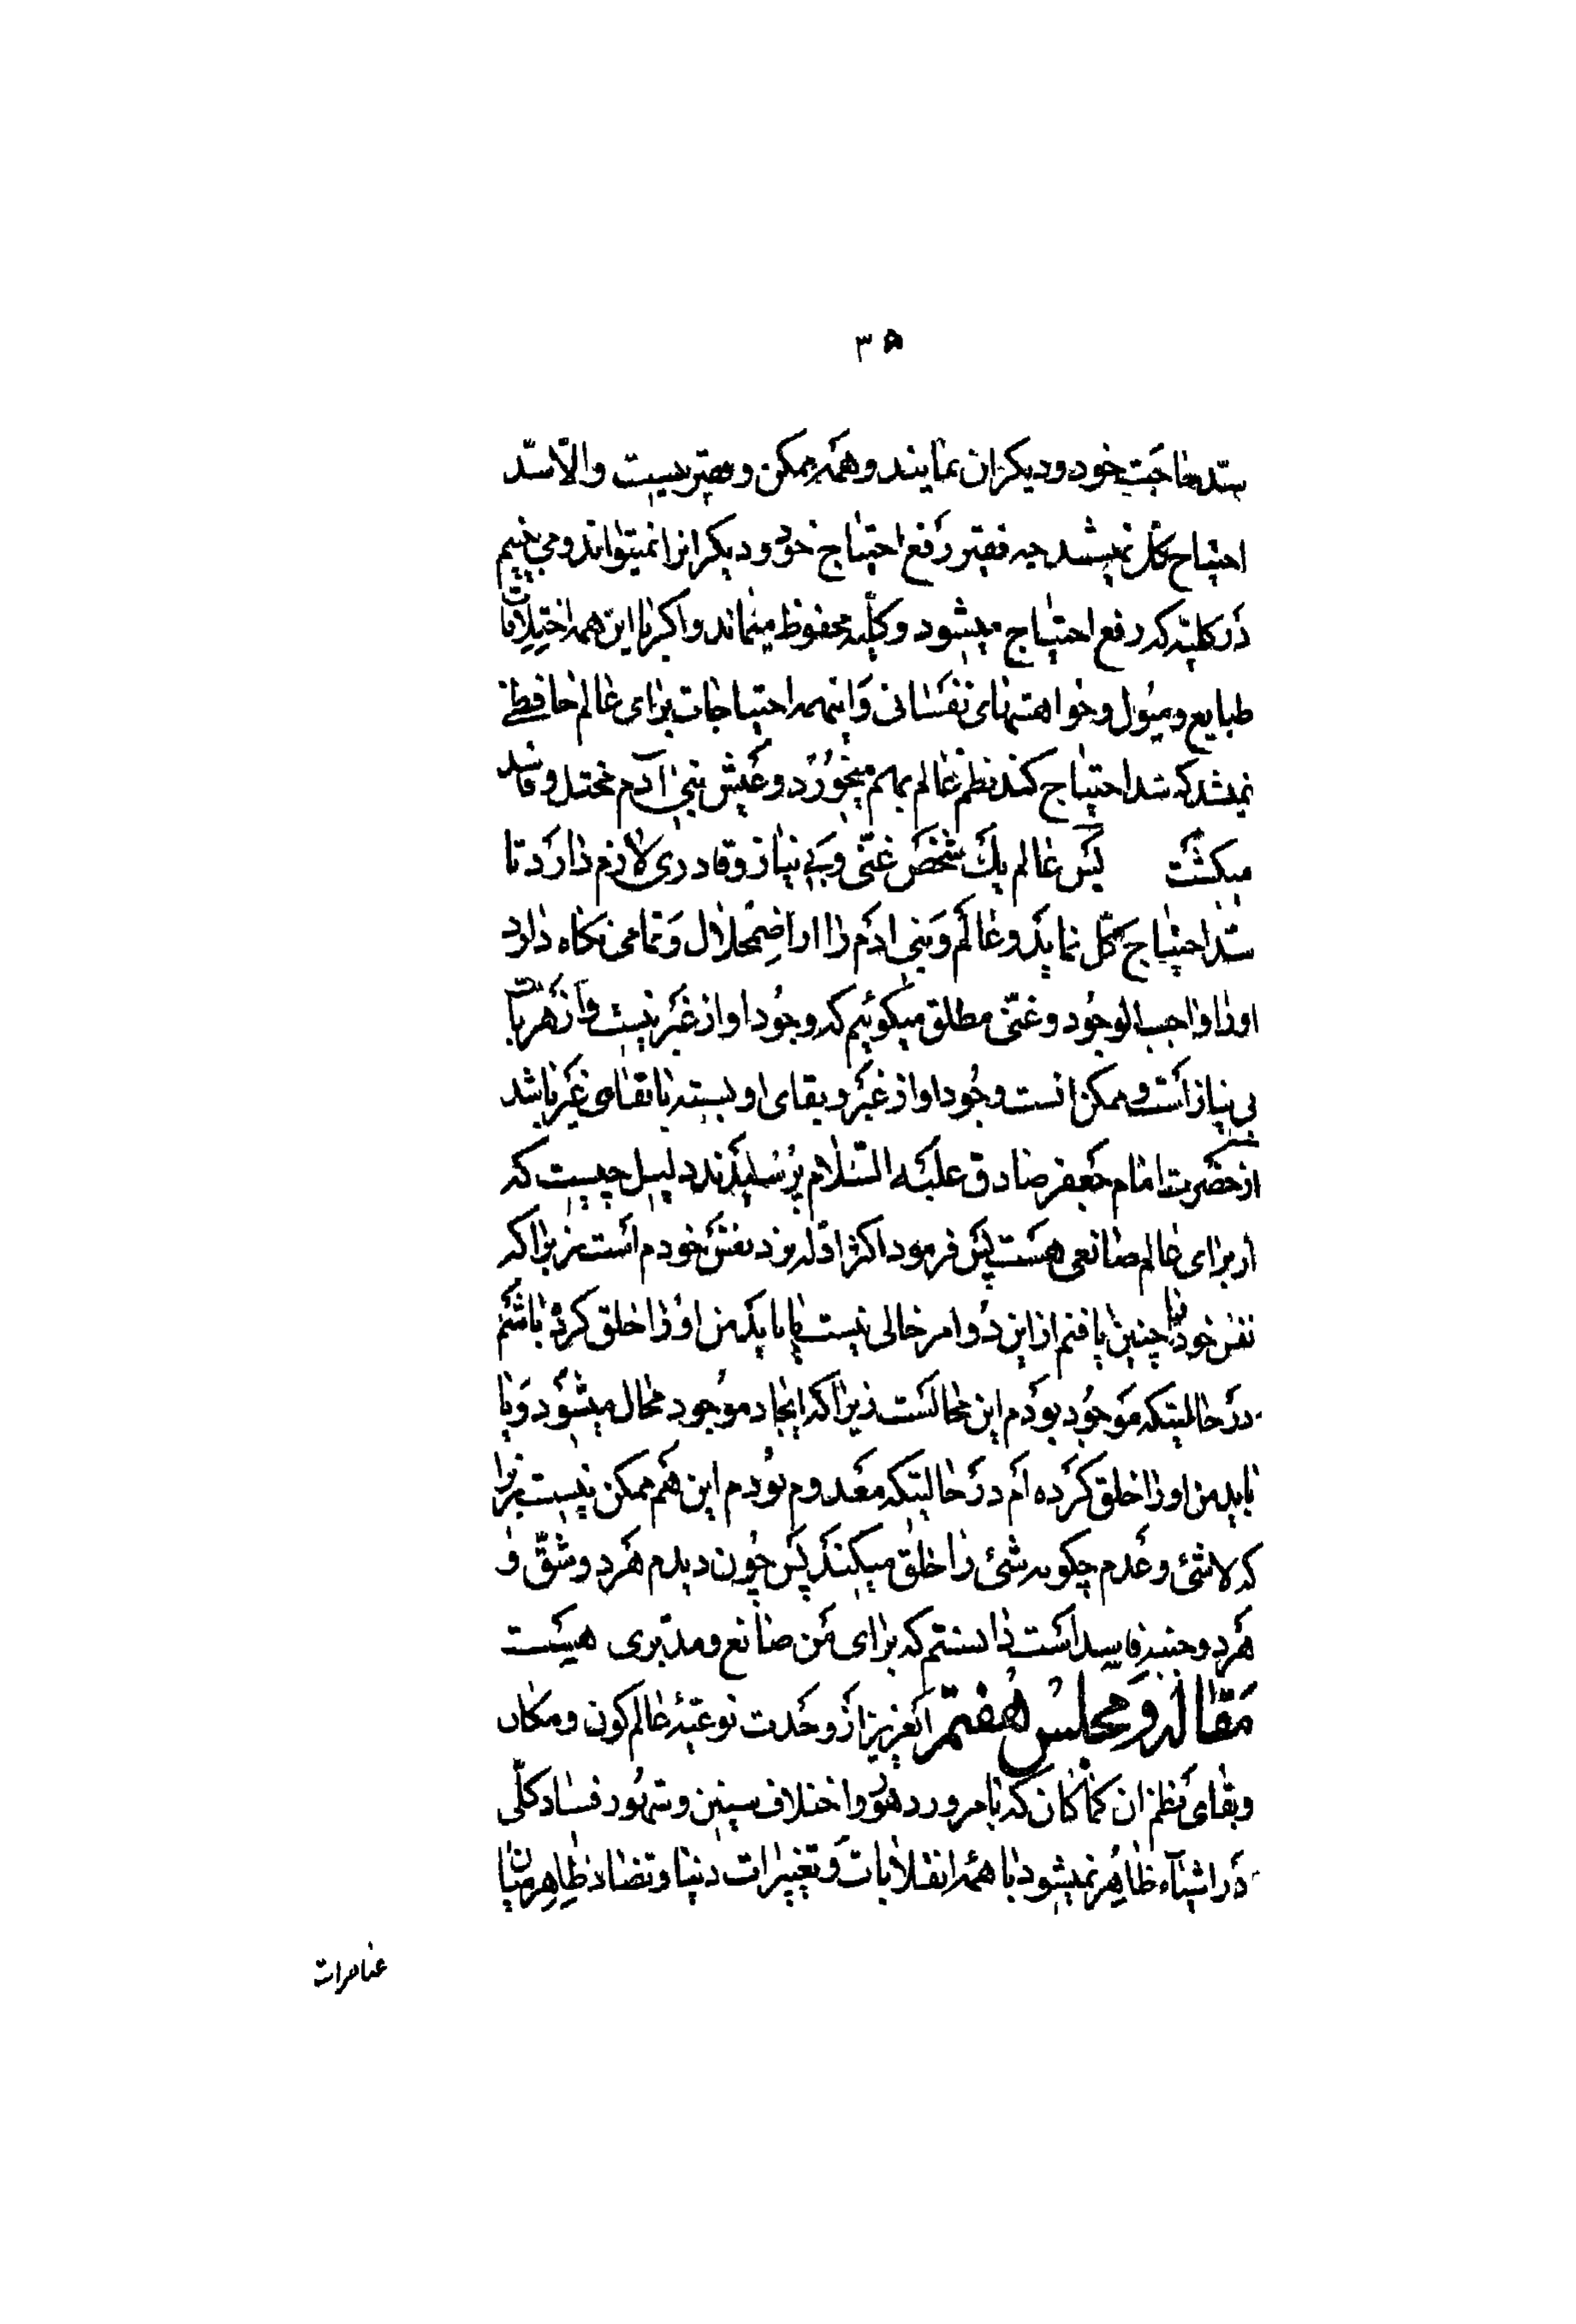 ۳۵
سد حاجت خود و دیکران نمایند و همه ممکن و فقیر نیست والّا سدّ
احتیاج کل نمیشد چه فقیر رفع احتیاج خود و دیکرانرا نمیتواند و می بینیم
در کلیه که رفع احتیاج میشود و کلیه محفوظ میماند و اکر با این همه اختلافات
طبایع و میول و خواهشهای نفسانی و اینهمه احتیاجات برای عالم حافظی
نمیشد که سد احتیاج کند نظم عالم بهم میخورد و عیش بنی آدم مختل و فاسد
میکشت پس عالم یک شخص غنّی و بی نیاز و قادری لازم دارد تا
سد احتیاج کل نماید و عالم و بنی ادم را از اضمحلال و تمامی نکاه دارد
او را واجب الوجود و غنّی مطلق میکوئیم که وجود او از غیر نیست و از هر
بی نیاز است و ممکن انست وجود او از غیر و بقای او بسته بابقای غیر باشد
از حضرت امام جعفر صادق علیه السّلام پرسیدند دلیل چیست که
از برای عالم صانعی هست پس فرمود اکثر ادله نزد نفس خودم است زیرا که
نفس خود را چنین یافتم از این دو امر خالی نیست یا باید من او را خلق کرده باشم
در حالیتکه موجود بودم این محالست زیرا که ایجاد موجود محال میشود و یا
باید من او را خلق کرده ام در حالیتکه معدوم بودم این هم ممکن نیست زیرا
که لاشئ و عدم چکونه شئ را خلق میکند پس چون دیدم هر دو شقّ و
هر دو جنبه فاسد است دانستم که برای من صانع و مدبّری هست
مقاله و مجلس هفتم ایعزیز از وحدت نوعیّهٔ عالم کون و مکان
و بقای نظم ان کما کان که با مرور دهور و اختلاف سنین و شهور فساد کلّی
در اشیاء ظاهر نمیشود با همه انقلابات و تغییرات دنیا و تضاد ظاهر میان
عناصرات